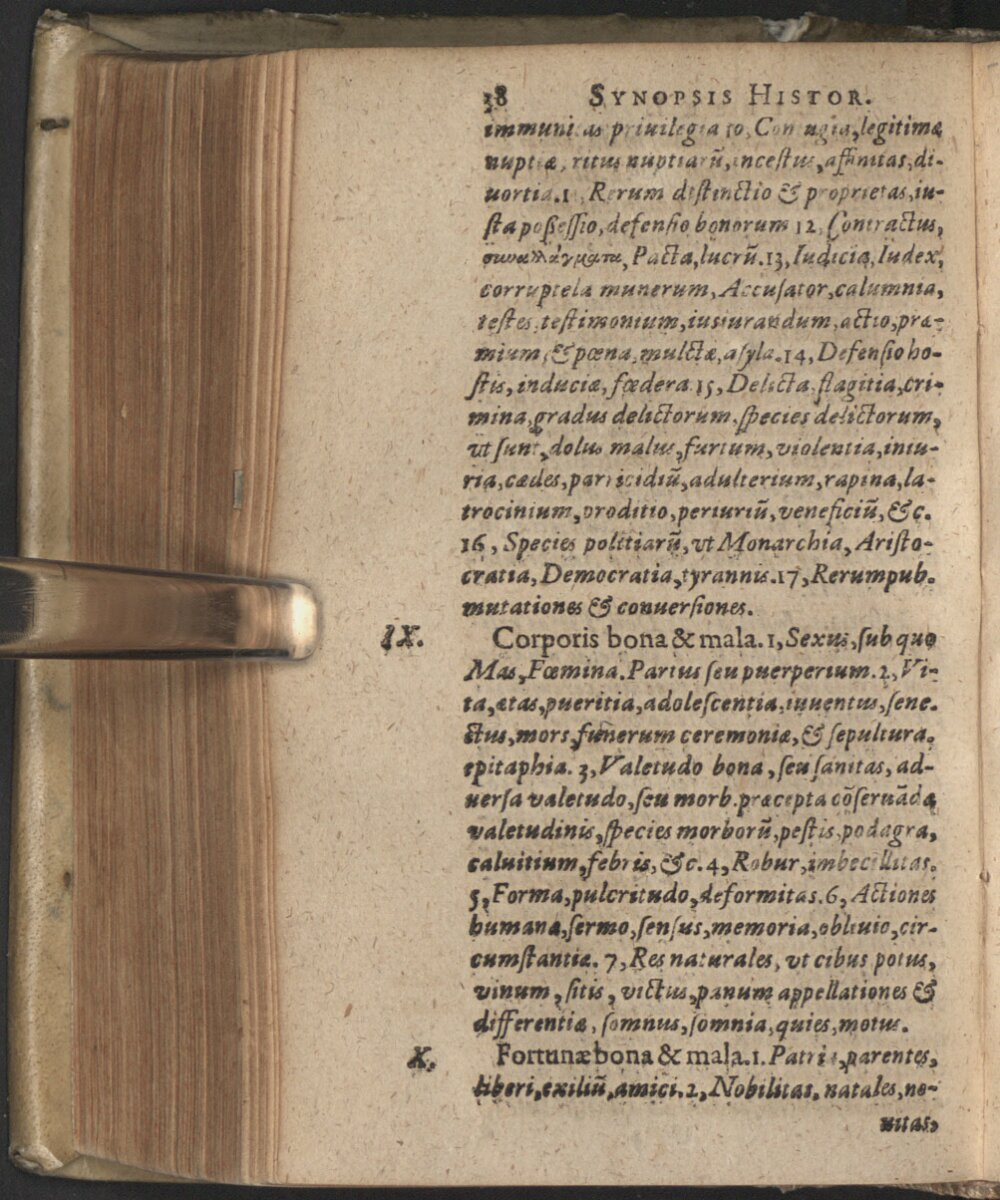 38 SYNOPSIS HISTOR.
immunitas priuilegia 10, Coniugia, legitimæ
nuptiæ, ritus nuptiarũ, incestus, affinitas, di-
uortia. 11, Rerum distinctio & proprietas, iu-
sta possessio, defensio bonorum 12, Contractus,
συναλλάγματα, Pacta, lucrũ. 13, Iudicia, Iudex,
corruptela munerum, Accusator, calumnia,
testes, testimonium, iusiurandum, actio, præ-
mium, & pœna, mulctæ, asyla. 14, Defensio ho-
stis, induciæ, fœdera 15, Delicta, flagitia, cri-
mina, gradus delictorum, species delictorum,
vt sunt, dolus malus, furtum, violentia, iniu-
ria, cædes, parricidiũ, adulterium, rapina, la-
trocinium, proditio, periuriũ, veneficiũ, &c.
16, Species politiarũ, vt Monarchia, Aristo-
cratia, Democratia, tyrannis. 17, Rerumpub.
mutationes & conuersiones.
IX. Corporis bona & mala. 1, Sexus, sub quo
Mas, Fœmina. Partus seu puerperium. 2, Vi-
ta, ætas, pueritia, adolescentia, iuuentus, sene-
ctus, mors, funerum ceremoniæ, & sepultura,
epitaphia. 3, Valetudo bona, seu sanitas, ad-
uersa valetudo, seu morb. præcepta cõseruãdæ
valetudinis, species morborũ, pestis, podagra,
caluitium, febris, &c. 4, Robur, imbecillitas.
5, Forma, pulcritudo, deformitas. 6, Actiones
humanæ, sermo, sensus, memoria, obliuio, cir-
cumstantiæ. 7, Res naturales, vt cibus potus,
vinum, sitis, victus, panum appellationes &
differentiæ, somnus, somnia, quies, motus.
X. Fortunæ bona & mala. 1. Patria, parentes,
liberi, exiliũ, amici. 2, Nobilitas, natales, no-
uitas,